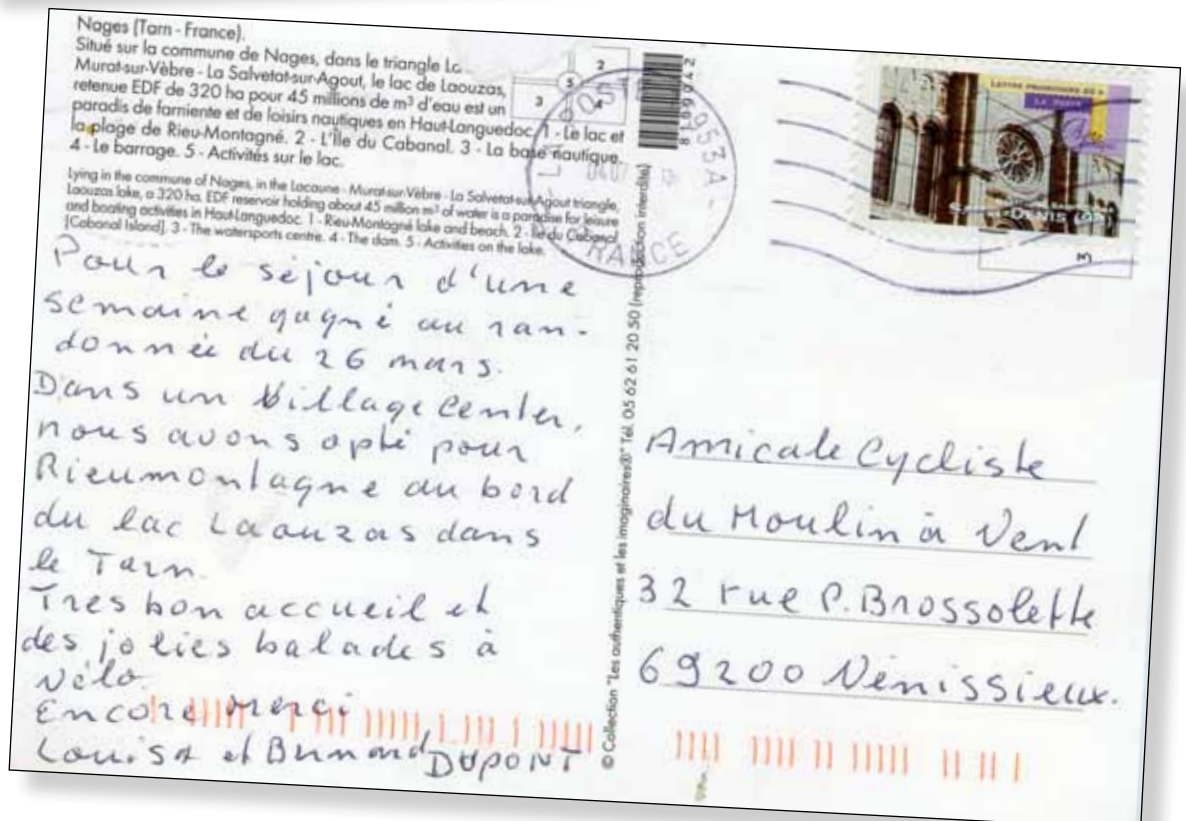 Nages (Tarn - France).
Situé sur la commune de Nages, dans le triangle
Murat-sur-Vèbre - La Salvetat-sur-Agout, le lac de Laouzas,
retenue EDF de 320 ha pour 45 millions de m³ d'eau est un
paradis de farniente et de loisirs nautiques en Haut-Languedoc. 1 - Le lac et
la plage de Rieu-Montagné. 2 - L'Île du Cabanal. 3 - La base nautique.
4 - Le barrage. 5 - Activités sur le lac.
Lying in the commune of Nages, in the Lacaune - Murat-sur-Vèbre - La Salvetat-sur-Agout triangle,
Laouzas lake, a 320 ha. EDF reservoir holding about 45 million m³ of water is a paradise for leisure
and boating activities in Haut-Languedoc. 1 - Rieu-Montagné lake and beach. 2 - Île du Cabanal
[Cabanal Island]. 3 - The watersports centre. 4 - The dam. 5 - Activities on the lake.
2
5
3
4
Pour le séjour d'une
semaine gagné au ran-
donnée du 26 mars.
Dans un Village Center,
nous avons opté pour
Rieumontagne au bord
du lac Laouzas dans
le Tarn.
Tres bon accueil et
des jolies balades à
vélo.
Encore merci
Louisa et Bernard DUPONT
© Collection "Les authentiques et les imaginaires®" Tél. 05 62 61 20 50 (reproduction interdite)
LA POSTE
SAINT-DENIS
FRANCE
3
Amicale Cycliste
du Moulin à Vent
32 rue P. Brossolette
69200 Vénissieux.